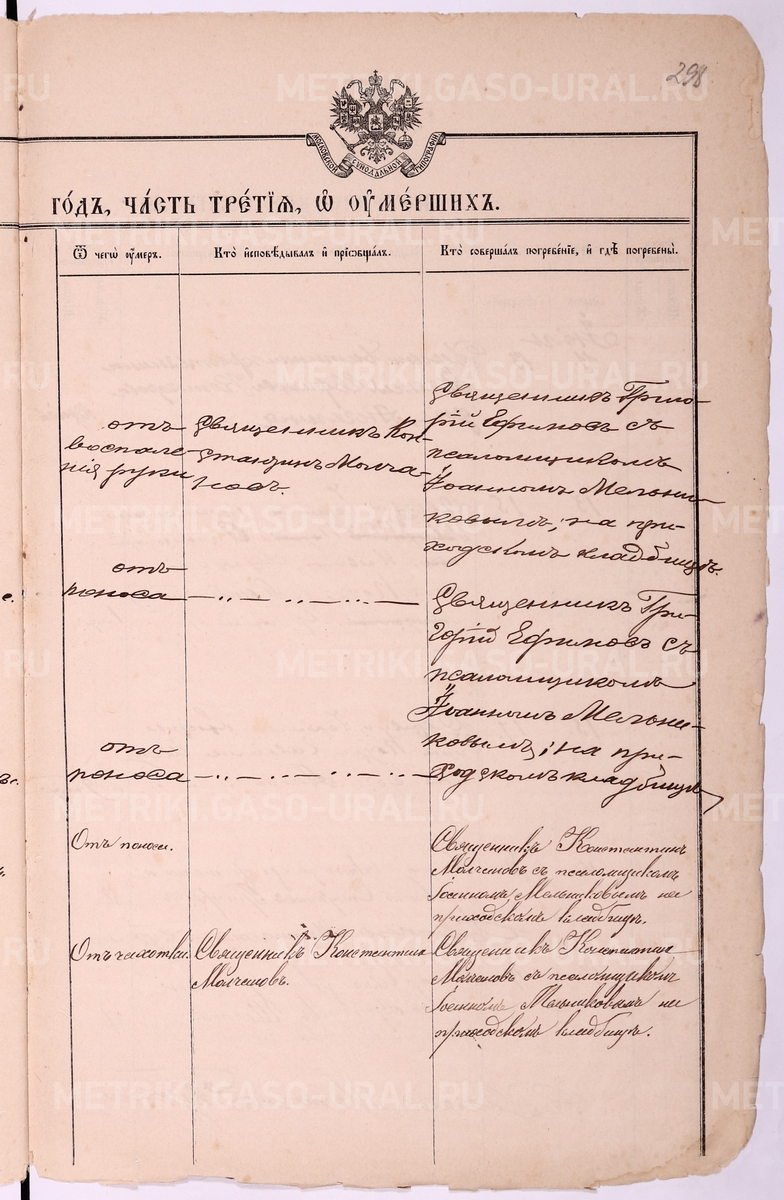 298
МОСКОВСКОЙ СѴНОДАЛЬНОЙ ТИПОГРАФІИ
ГО́ДЪ, ЧА́СТЬ ТРЕ́ТІЯ, Ѡ҆ ОУ҆МЕ́РШИХЪ.
Ѿ чегѡ̀ оу҆́меръ.
Кто̀ и҆сповѣ́дывалъ и҆ прїѡбща́лъ.
Кто̀ соверша́лъ погребе́нїе, и҆ гдѣ̀ погребены̀.
отъ
воспале-
нія руки
Священникъ Кон-
стантинъ Молча-
новъ.
Священникъ Григо-
рій Ефимовъ съ
псаломщикомъ
Іоанномъ Мельни-
ковымъ, на при-
ходскомъ кладбищѣ.
отъ
поноса
— „ — „ — „ —
Священникъ Гри-
горій Ефимовъ съ
псаломщикомъ
Іоанномъ Мельни-
ковымъ, на при-
ходскомъ кладбищѣ
отъ
поноса
— „ — „ — „ —
Отъ поноса.
Священникъ Константинъ
Молчановъ съ псаломщикомъ
Іоанномъ Мельниковымъ на
приходскомъ кладбищѣ.
Отъ чахотки.
Священникъ Константинъ
Молчановъ.
Священникъ Константинъ
Молчановъ съ псаломщикомъ
Іоанномъ Мельниковымъ на
приходскомъ кладбищѣ.
METRIKI.GASO-URAL.RU